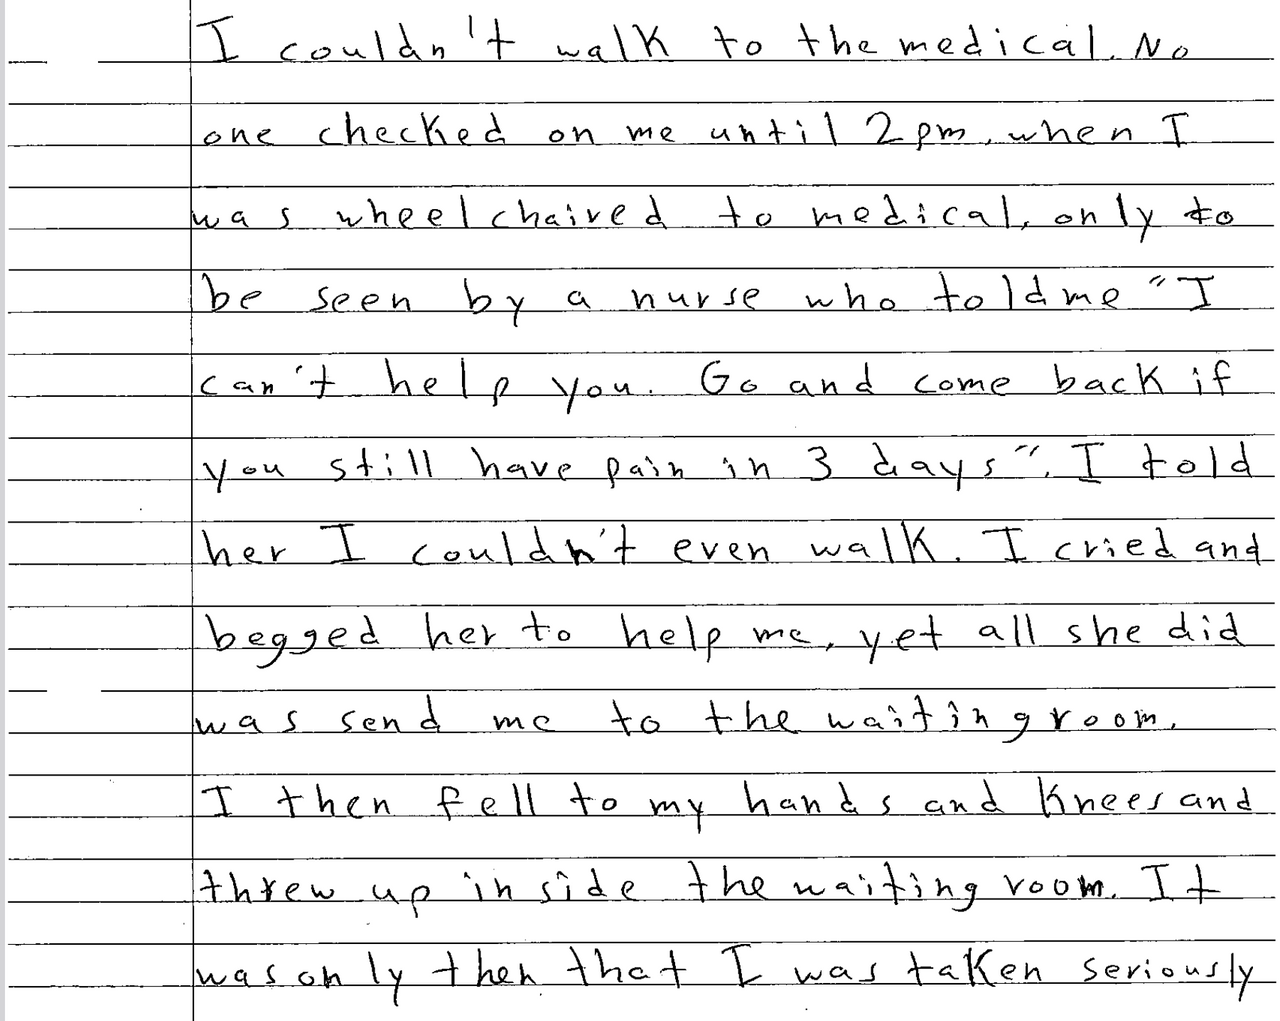 I couldn't walk to the medical. No
one checked on me until 2pm, when I
was wheelchaired to medical, only to
be seen by a nurse who told me "I
can't help you. Go and come back if
you still have pain in 3 days". I told
her I couldn't even walk. I cried and
begged her to help me, yet all she did
was send me to the waiting room.
I then fell to my hands and knees and
threw up inside the waiting room. It
was only then that I was taken seriously